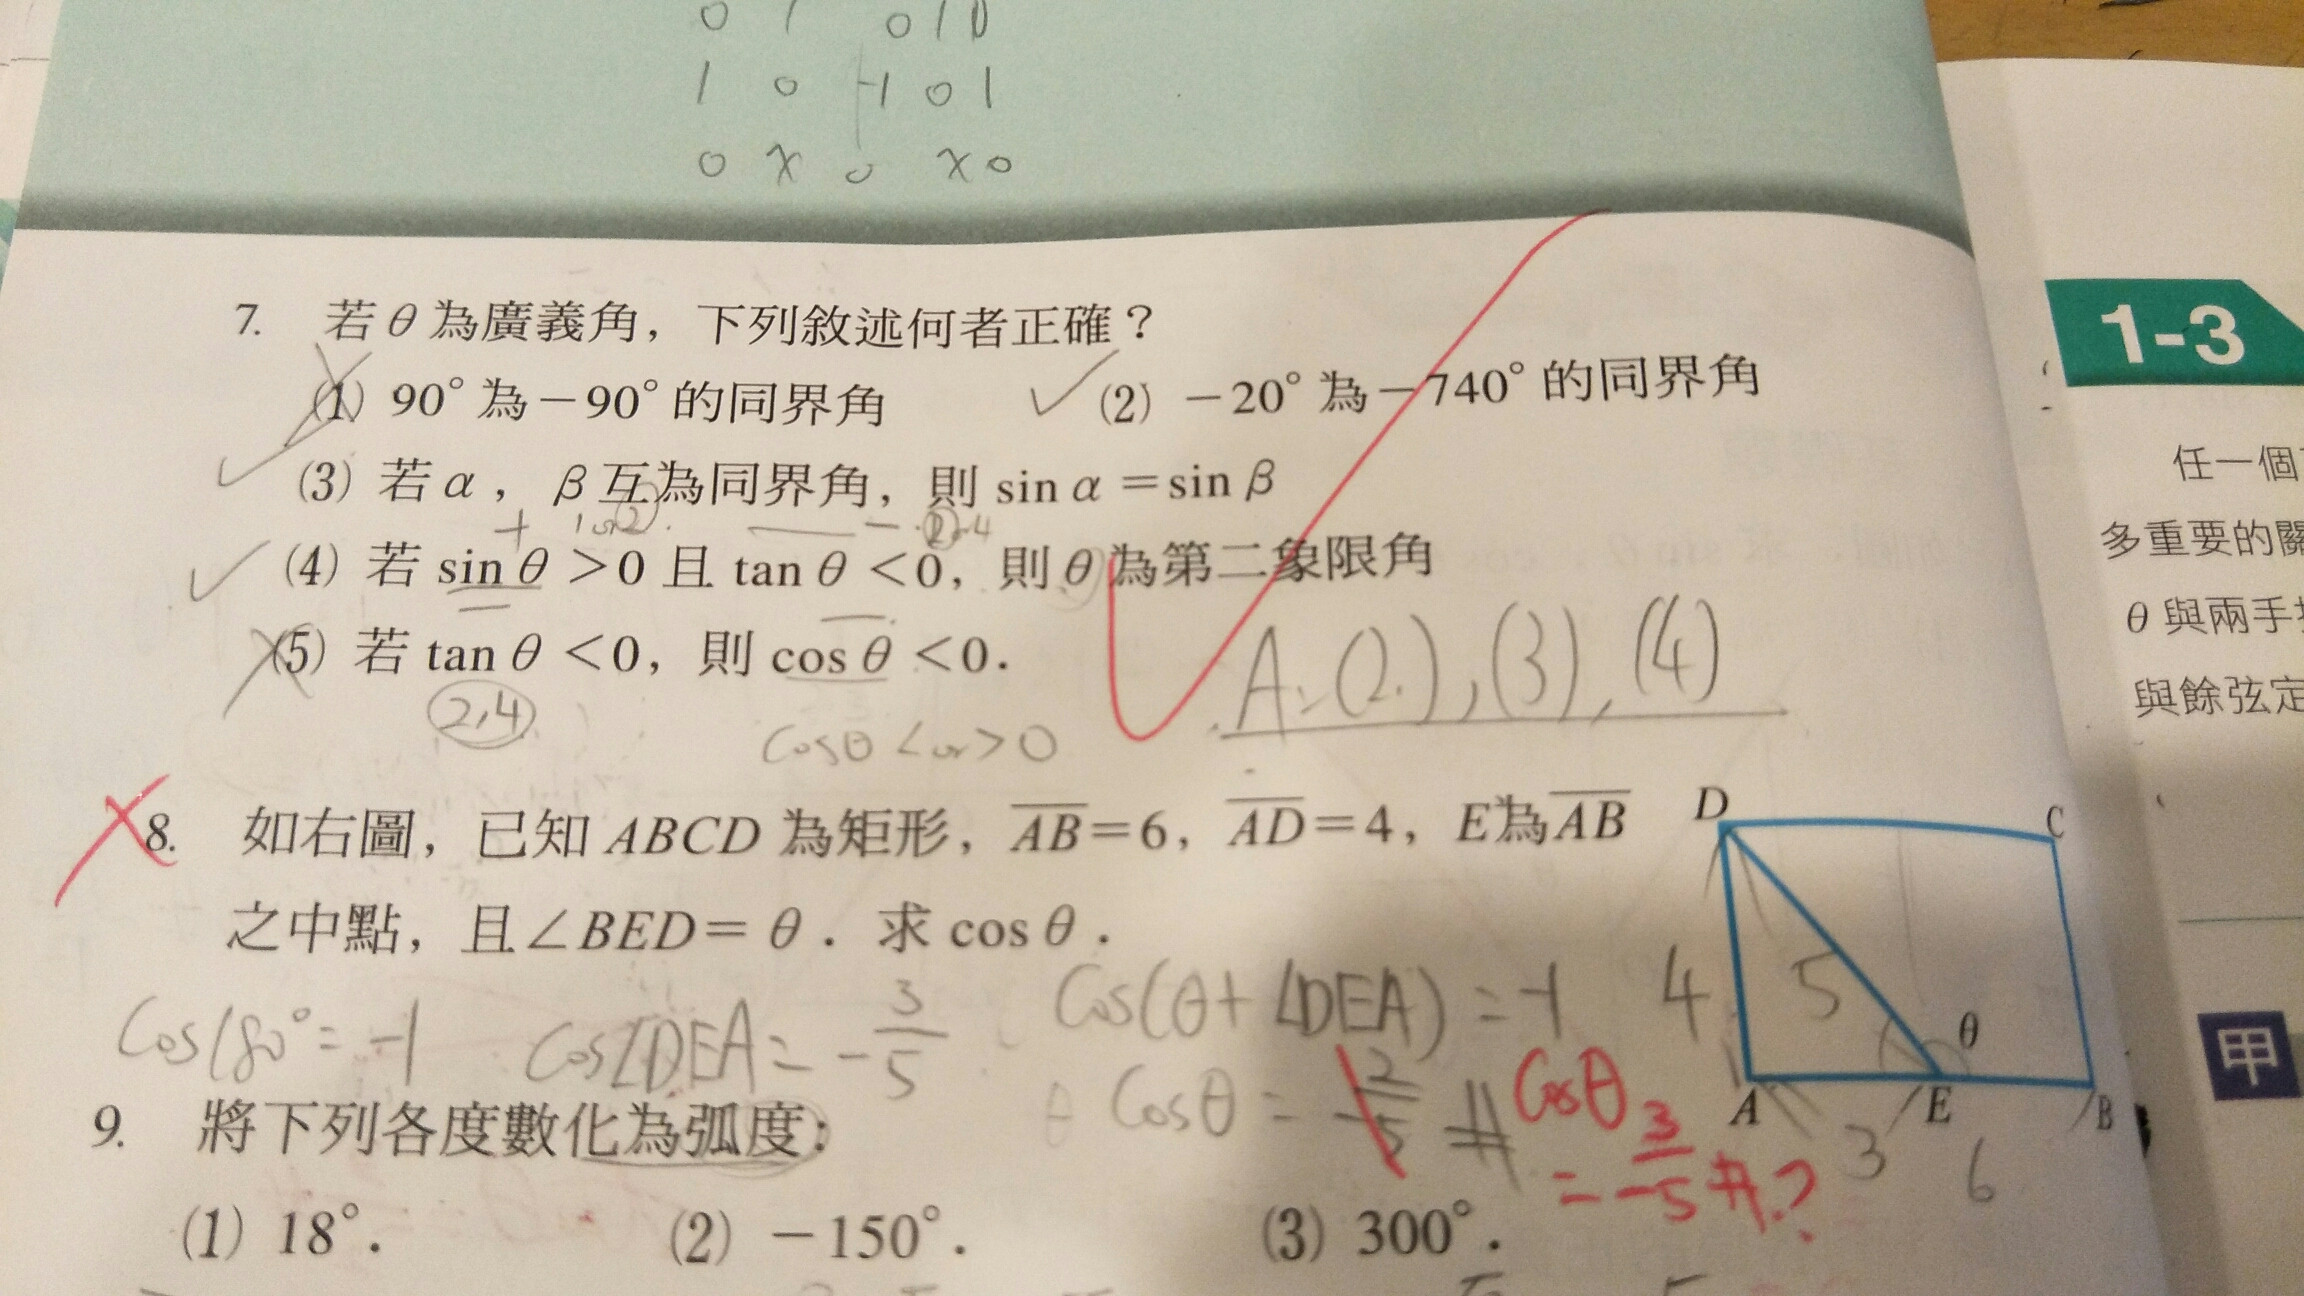 0 1 0 1 0
1 0 -1 0 1
0 X 0 X 0
7. 若θ為廣義角，下列敘述何者正確？
(1) 90°為－90°的同界角 (2) －20°為－740°的同界角
(3) 若α，β互為同界角，則 sin α＝sin β
(4) 若 sin θ＞0 且 tan θ＜0，則θ為第二象限角
(5) 若 tan θ＜0，則 cos θ＜0．
2,4
cosθ < or > 0
A:(2),(3),(4)
8. 如右圖，已知 ABCD 為矩形，AB＝6，AD＝4，E為AB
之中點，且∠BED＝θ．求 cos θ．
D C
A E B
θ
4 5
3 6
cos180°=-1 cos∠DEA=-3/5 cos(θ+∠DEA)=-1
cosθ=2/-5 #
cosθ
=3/-5 #?
9. 將下列各度數化為弧度：
(1) 18°． (2) －150°． (3) 300°．
1-3
任一個
多重要的關
θ與兩手
與餘弦定
甲